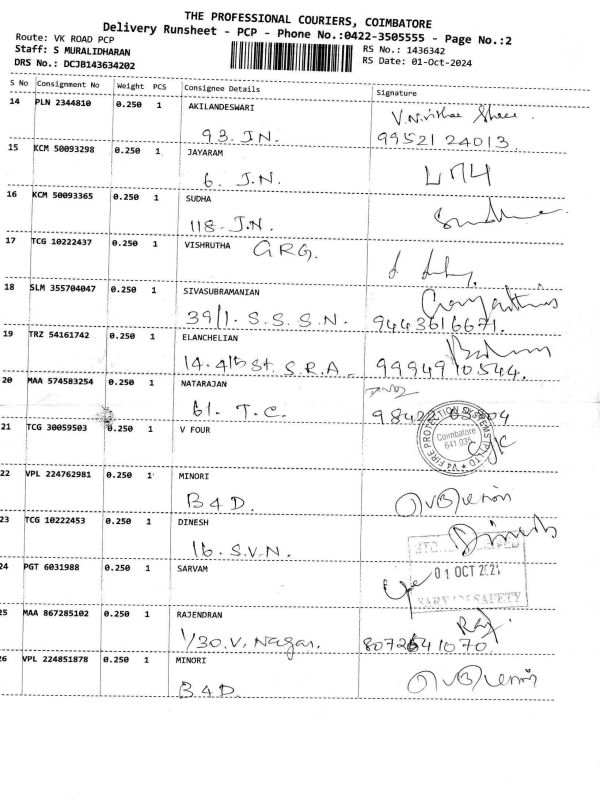 THE PROFESSIONAL COURIERS, COIMBATORE
Delivery Runsheet - PCP - Phone No.:0422-3505555 - Page No.:2
Route: VK ROAD PCP
Staff: S MURALIDHARAN
DRS No.: DCJB143634202
RS No.: 1436342
RS Date: 01-Oct-2024
S No Consignment No Weight PCS Consignee Details Signature
14 PLN 2344810 0.250 1 AKILANDESWARI
93. J.N. 99521 24013
15 KCM 50093298 0.250 1 JAYARAM
6. J.N.
16 KCM 50093365 0.250 1 SUDHA
118. J.N.
17 TCG 10222437 0.250 1 VISHRUTHA GRG.
18 SLM 355704047 0.250 1 SIVASUBRAMANIAN
39/1. S.S.S.N. 9443616671.
19 TRZ 54161742 0.250 1 ELANCHELIAN
14. 4th St. S.R.A. 9994910544.
20 MAA 574583254 0.250 1 NATARAJAN
61. T.C.
21 TCG 30059503 0.250 1 V FOUR
V4 FIRE PROTECTION SYSTEMS (P) LTD
Coimbatore
641 035
22 VPL 224762981 0.250 1 MINORI
B4D.
23 TCG 10222453 0.250 1 DINESH Dinesh
16. S.V.N.
24 PGT 6031988 0.250 1 SARVAM
01 OCT 2024
25 MAA 867285102 0.250 1 RAJENDRAN
1/30. V. Nagar. 8072641070
26 VPL 224851878 0.250 1 MINORI
B4D.